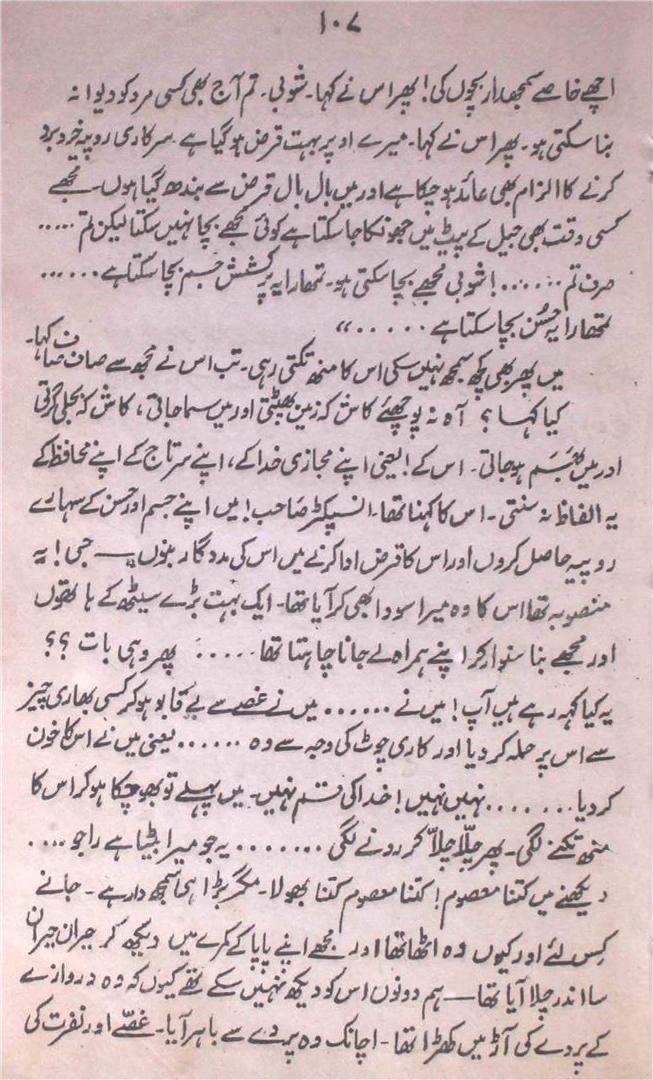 ۱۰۷
اچھے خاصے سمجھدار بچوں کی! پھر اس نے کہا۔ شوبی۔ تم آج بھی کسی مرد کو دیوانہ
بنا سکتی ہو۔ پھر اس نے کہا۔ میرے اوپر بہت قرض ہو گیا ہے سرکاری روپیہ خرد برد
کرنے کا الزام بھی عائد ہو چکا ہے اور میں بال بال قرض سے بندھ گیا ہوں۔ مجھے
کسی وقت بھی جیل کے پیٹ میں جھونکا جا سکتا ہے کوئی مجھے بچا نہیں سکتا لیکن تم .....
صرف تم ......! شوبی مجھے بچا سکتی ہو۔ تمھارا یہ پُرکشش جسم بچا سکتا ہے ......
تمھارا یہ حُسن بچا سکتا ہے ..... ،،
میں پھر بھی کچھ سمجھ نہیں سکی اس کا منھ تکتی رہی۔ تب اس نے مجھ سے صاف صاف کہا۔
کیا کہا؟ آہ نہ پوچھئے کاش کہ زمین پھٹتی اور میں سما جاتی، کاش کہ بجلی گرتی
اور میں بھسم ہو جاتی۔ اس کے! یعنی اپنے مجازی خدا کے، اپنے سرتاج کے اپنے محافظ کے
یہ الفاظ نہ سنتی۔ اس کا کہنا تھا۔ انسپکٹر صاحب! میں اپنے جسم اور حسن کے سہارے
روپیہ حاصل کروں اور اس کا قرض ادا کرنے میں اس کی مددگار بنوں — جی! یہ
منصوبہ تھا اس کا وہ میرا سودا بھی کر آیا تھا۔ ایک بہت بڑے سیٹھ کے ہاتھوں
اور مجھے بنا سنوار کر اپنے ہمراہ لے جانا چاہتا تھا ..... پھر وہی بات ؟؟
یہ کیا کہہ رہے ہیں آپ! میں نے ...... میں نے غصے سے بے قابو ہو کر کسی بھاری چیز
سے اس پر حملہ کر دیا اور کاری چوٹ کی وجہ سے وہ ...... یعنی میں نے اس کا خون
کر دیا ....... نہیں نہیں! خدا کی قسم نہیں۔ میں پہلے تو بھوچکا ہو کر اس کا
منھ تکنے لگی۔ پھر چلّا چلاّ کر رونے لگی ....... یہ جو میرا بیٹا ہے راجو ....
دیکھنے میں کتنا معصوم! کتنا معصوم کتنا بھولا۔ مگر بڑا ہی سمجھ دار ہے۔ جانے
کس لئے اور کیوں وہ اٹھا تھا اور مجھے اپنے پاپا کے کمرے میں دیکھ کر حیران حیران
سا اندر چلا آیا تھا — ہم دونوں اس کو دیکھ نہیں سکے تھے کیوں کہ وہ دروازے
کے پردے کی آڑ میں کھڑا تھا۔ اچانک وہ پردے سے باہر آیا۔ غصّے اور نفرت کی